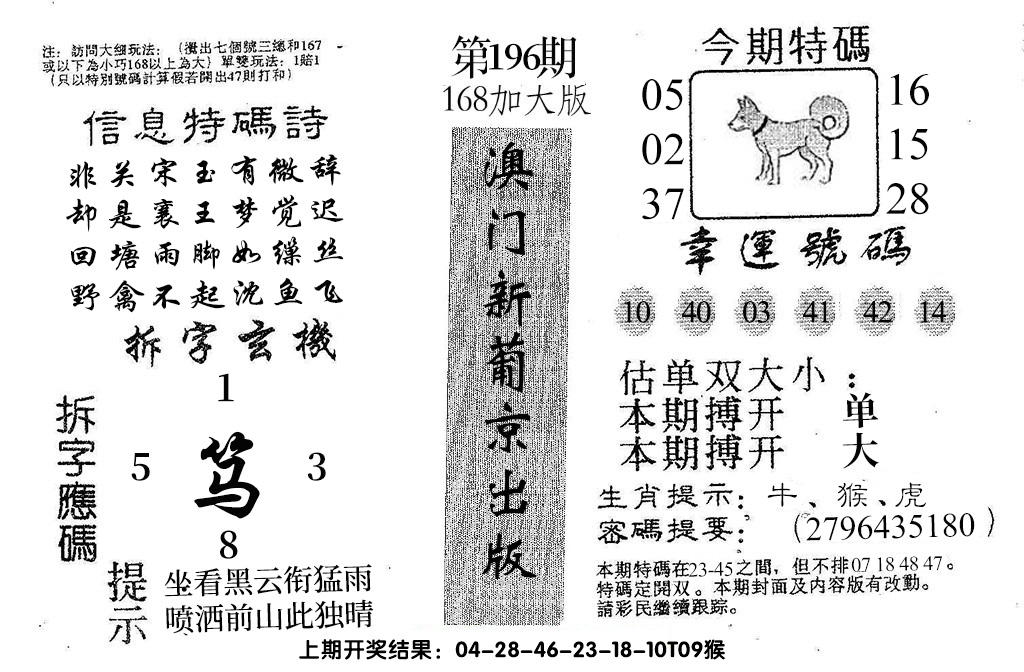 注：訪問大细玩法：（攪出七個號三總和167
或以下為小巧168以上為大）單雙玩法：1賠1
（只以特別號碼計算假若開出47則打和）
信息特碼詩
非关宋玉有微辞
却是襄王梦觉迟
回塘雨脚如缲丝
野禽不起沈鱼飞
拆字玄機
拆字應碼
1
5 笃 3
8
提示
坐看黑云衔猛雨
喷洒前山此独晴
第196期
168加大版
澳门新葡京出版
今期特碼
05 16
02 15
37 28
幸運號碼
10 40 03 41 42 14
估单双大小：
本期搏开 单
本期搏开 大
生肖提示：牛、猴、虎
密碼提要：（2796435180）
本期特碼在23-45之間，但不排07 18 48 47。
特碼定開双。本期封面及内容版有改動。
請彩民繼續跟踪。
上期开奖结果：04-28-46-23-18-10T09猴